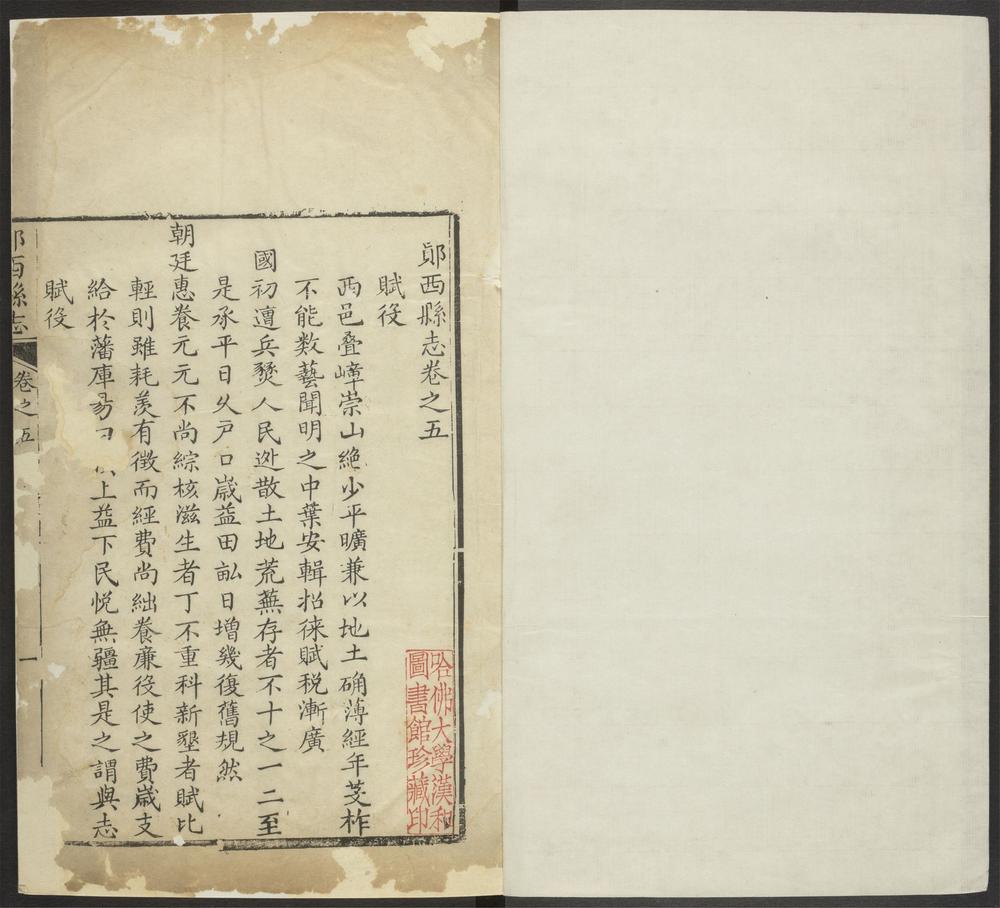 鄖西縣志卷之五
賦役
西邑叠嶂崇山絶少平曠兼以地土确薄經年芟柞
不能数藝聞明之中葉安輯招徠賦税漸廣
國初遭兵燹人民迯散土地荒蕪存者不十之一二至
是承平日乆戸口歳益田畆日増幾復舊規然
朝廷惠養元元不尚綜核滋生者丁不重科新墾者賦比
輕則雖耗羡有徴而經費尚絀養廉役使之費歳支
給於藩庫易曰上益下民悦無疆其是之謂與志
賦役
郧西縣志
卷之五
一
哈佛大學漢和
圖書館珍藏印